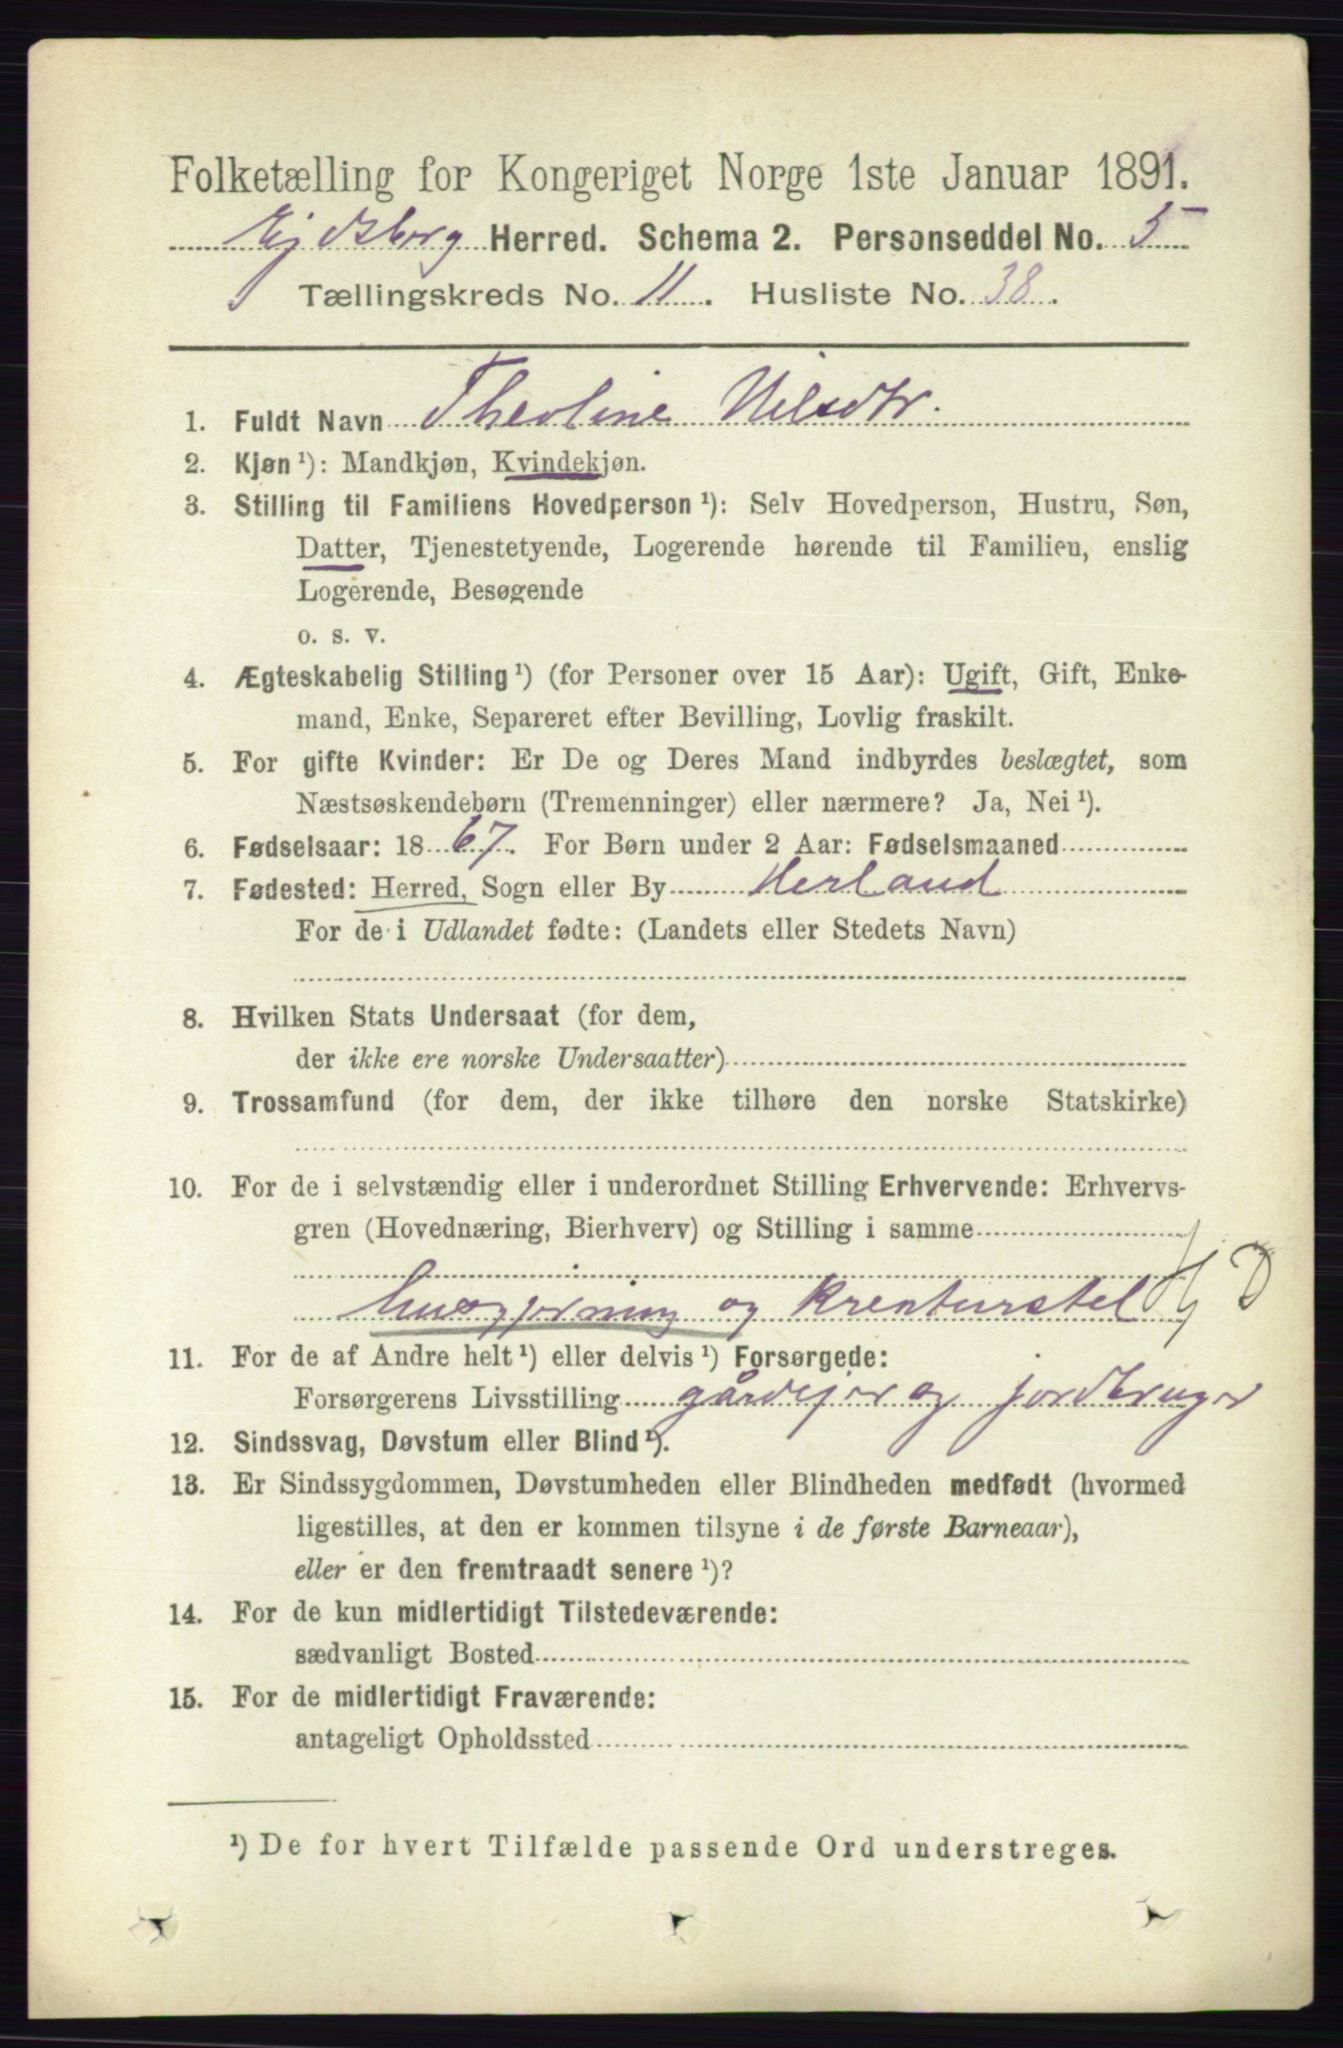 Folketælling for Kongeriget Norge 1ste Januar 1891.
Ejdsberg Herred. Schema 2. Personseddel No. 5
Tællingskreds No. 11. Husliste No. 38.
1. Fuldt Navn Theoline Nilsdtr.
2. Kjøn ¹): Mandkjøn, Kvindekjøn.
3. Stilling til Familiens Hovedperson ¹): Selv Hovedperson, Hustru, Søn,
Datter, Tjenestetyende, Logerende hørende til Familien, enslig
Logerende, Besøgende
o. s. v.
4. Ægteskabelig Stilling ¹) (for Personer over 15 Aar): Ugift, Gift, Enke-
mand, Enke, Separeret efter Bevilling, Lovlig fraskilt.
5. For gifte Kvinder: Er De og Deres Mand indbyrdes beslægtet, som
Næstsøskendebørn (Tremenninger) eller nærmere? Ja, Nei ¹).
6. Fødselsaar: 1867. For Børn under 2 Aar: Fødselsmaaned
7. Fødested: Herred, Sogn eller By Herland
For de i Udlandet fødte: (Landets eller Stedets Navn)
8. Hvilken Stats Undersaat (for dem,
der ikke ere norske Undersaatter)
9. Trossamfund (for dem, der ikke tilhøre den norske Statskirke)
10. For de i selvstændig eller i underordnet Stilling Erhvervende: Erhvervs-
gren (Hovednæring, Bierhverv) og Stilling i samme
husgjerning og Kreaturstel HJ D
11. For de af Andre helt ¹) eller delvis ¹) Forsørgede:
Forsørgerens Livsstilling gårdejer og jordbruger
12. Sindssvag, Døvstum eller Blind ¹).
13. Er Sindssygdommen, Døvstumheden eller Blindheden medfødt (hvormed
ligestilles, at den er kommen tilsyne i de første Barneaar),
eller er den fremtraadt senere ¹)?
14. For de kun midlertidigt Tilstedeværende:
sædvanligt Bosted
15. For de midlertidigt Fraværende:
antageligt Opholdssted
¹) De for hvert Tilfælde passende Ord understreges.